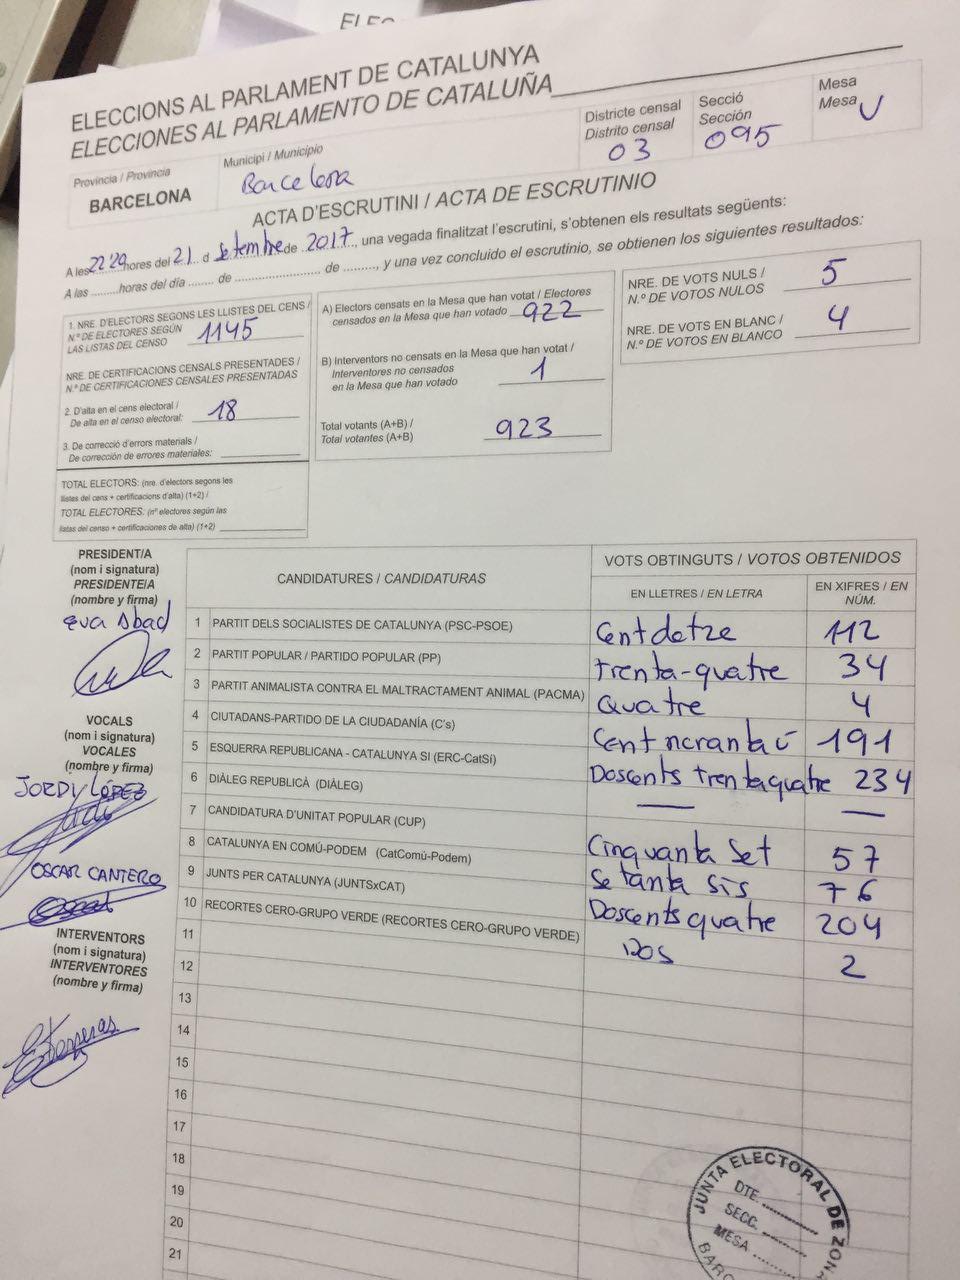 ELECCIONS AL PARLAMENT DE CATALUNYA
ELECCIONES AL PARLAMENTO DE CATALUÑA
Província / Provincia
BARCELONA
Municipi / Municipio
Barcelona
Districte censal
Distrito censal
03
Secció
Sección
095
Mesa
Mesa
U
ACTA D'ESCRUTINI / ACTA DE ESCRUTINIO
A les 22 29 hores del 21 d setembre de 2017, una vegada finalitzat l'escrutini, s'obtenen els resultats següents:
A las ......... horas del día ....... de ........................ de ........., y una vez concluido el escrutinio, se obtienen los siguientes resultados:
1. NRE. D'ELECTORS SEGONS LES LLISTES DEL CENS /
N.º DE ELECTORES SEGÚN
LAS LISTAS DEL CENSO
1145
NRE. DE CERTIFICACIONS CENSALS PRESENTADES /
N.º DE CERTIFICACIONES CENSALES PRESENTADAS
2. D'alta en el cens electoral /
De alta en el censo electoral:
18
3. De correcció d'errors materials /
De corrección de errores materiales:
TOTAL ELECTORS: (nre. d'electors segons les
llistes del cens + certificacions d'alta) (1+2) /
TOTAL ELECTORES: (nº electores según las
listas del censo + certificaciones de alta) (1+2)
A) Electors censats en la Mesa que han votat / Electores
censados en la Mesa que han votado 922
B) Interventors no censats en la Mesa que han votat /
Interventores no censados
en la Mesa que han votado
1
Total votants (A+B) /
Total votantes (A+B)
923
NRE. DE VOTS NULS /
N.º DE VOTOS NULOS
5
NRE. DE VOTS EN BLANC /
N.º DE VOTOS EN BLANCO
4
PRESIDENT/A
(nom i signatura)
PRESIDENTE/A
(nombre y firma)
Eva Abad
VOCALS
(nom i signatura)
VOCALES
(nombre y firma)
JORDY LÓPEZ
OSCAR CANTERO
INTERVENTORS
(nom i signatura)
INTERVENTORES
(nombre y firma)
CANDIDATURES / CANDIDATURAS
VOTS OBTINGUTS / VOTOS OBTENIDOS
EN LLETRES / EN LETRA
EN XIFRES / EN
NÚM.
1 PARTIT DELS SOCIALISTES DE CATALUNYA (PSC-PSOE) Cent dotze 112
2 PARTIT POPULAR / PARTIDO POPULAR (PP) trenta-quatre 34
3 PARTIT ANIMALISTA CONTRA EL MALTRACTAMENT ANIMAL (PACMA) Quatre 4
4 CIUTADANS-PARTIDO DE LA CIUDADANÍA (C's) Cent 191
5 ESQUERRA REPUBLICANA - CATALUNYA SI (ERC-CatSí) Doscents trentaquatre 234
6 DIÀLEG REPUBLICÀ (DIÀLEG) — —
7 CANDIDATURA D'UNITAT POPULAR (CUP) Cinquanta set 57
8 CATALUNYA EN COMÚ-PODEM (CatComú-Podem) Setanta sis 76
9 JUNTS PER CATALUNYA (JUNTSxCAT) Doscents quatre 204
10 RECORTES CERO-GRUPO VERDE (RECORTES CERO-GRUPO VERDE) Dos 2
11
12
13
14
15
16
17
18
19
20
21
JUNTA ELECTORAL DE ZONA
DTE.
SECC.
MESA